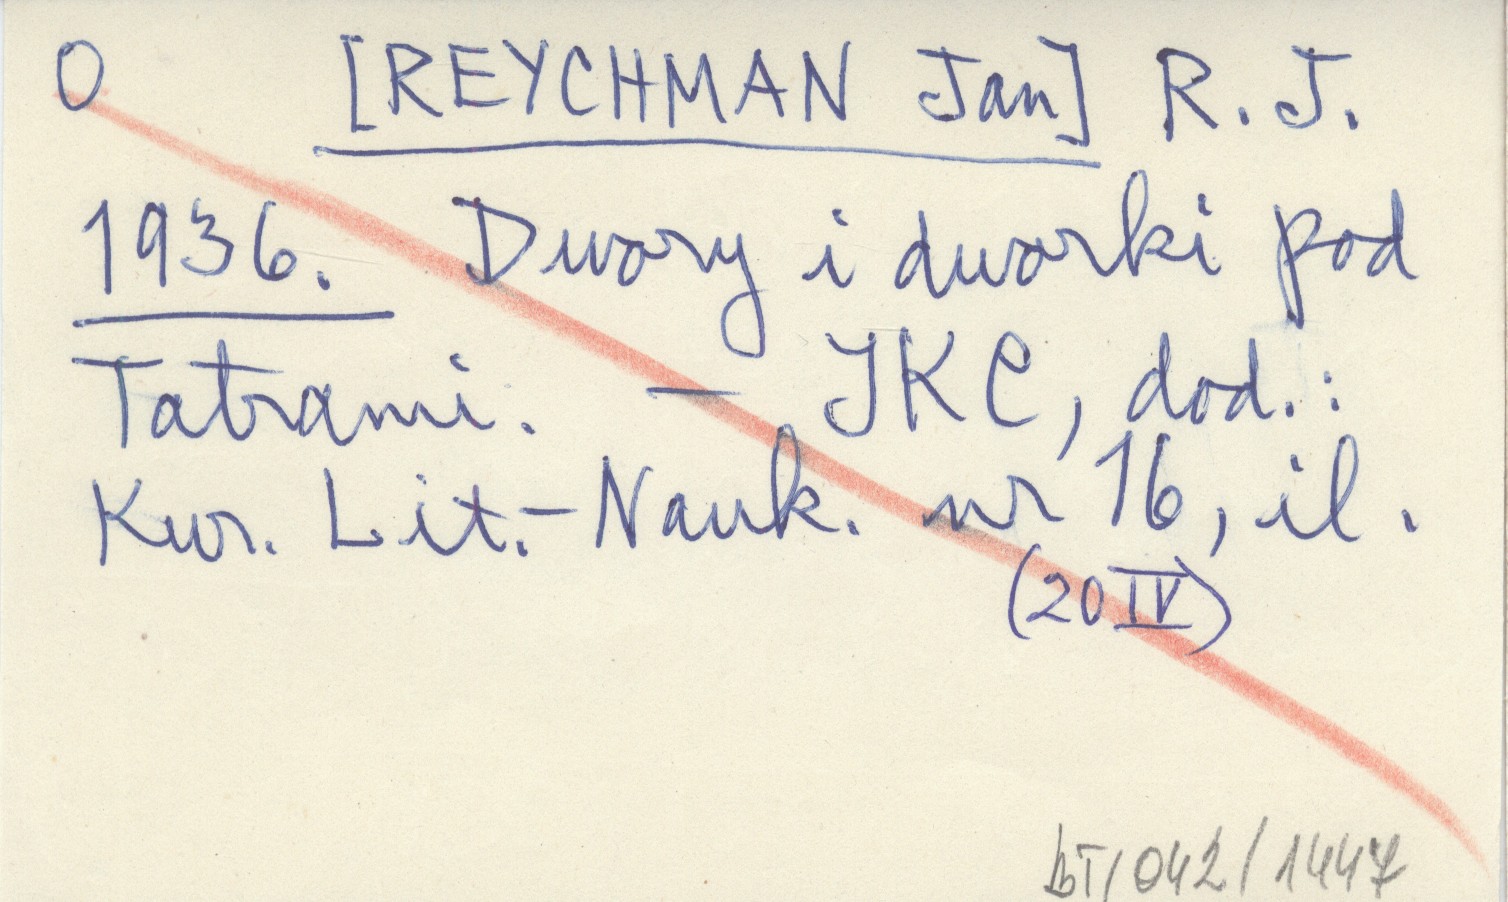 O [REYCHMAN Jan] R. J.
1936. Dwory i dworki pod
Tatrami. — IKC, dod.:
Kur. Lit.-Nauk. nr 16, il.
(20 IV)
bT/042/1447